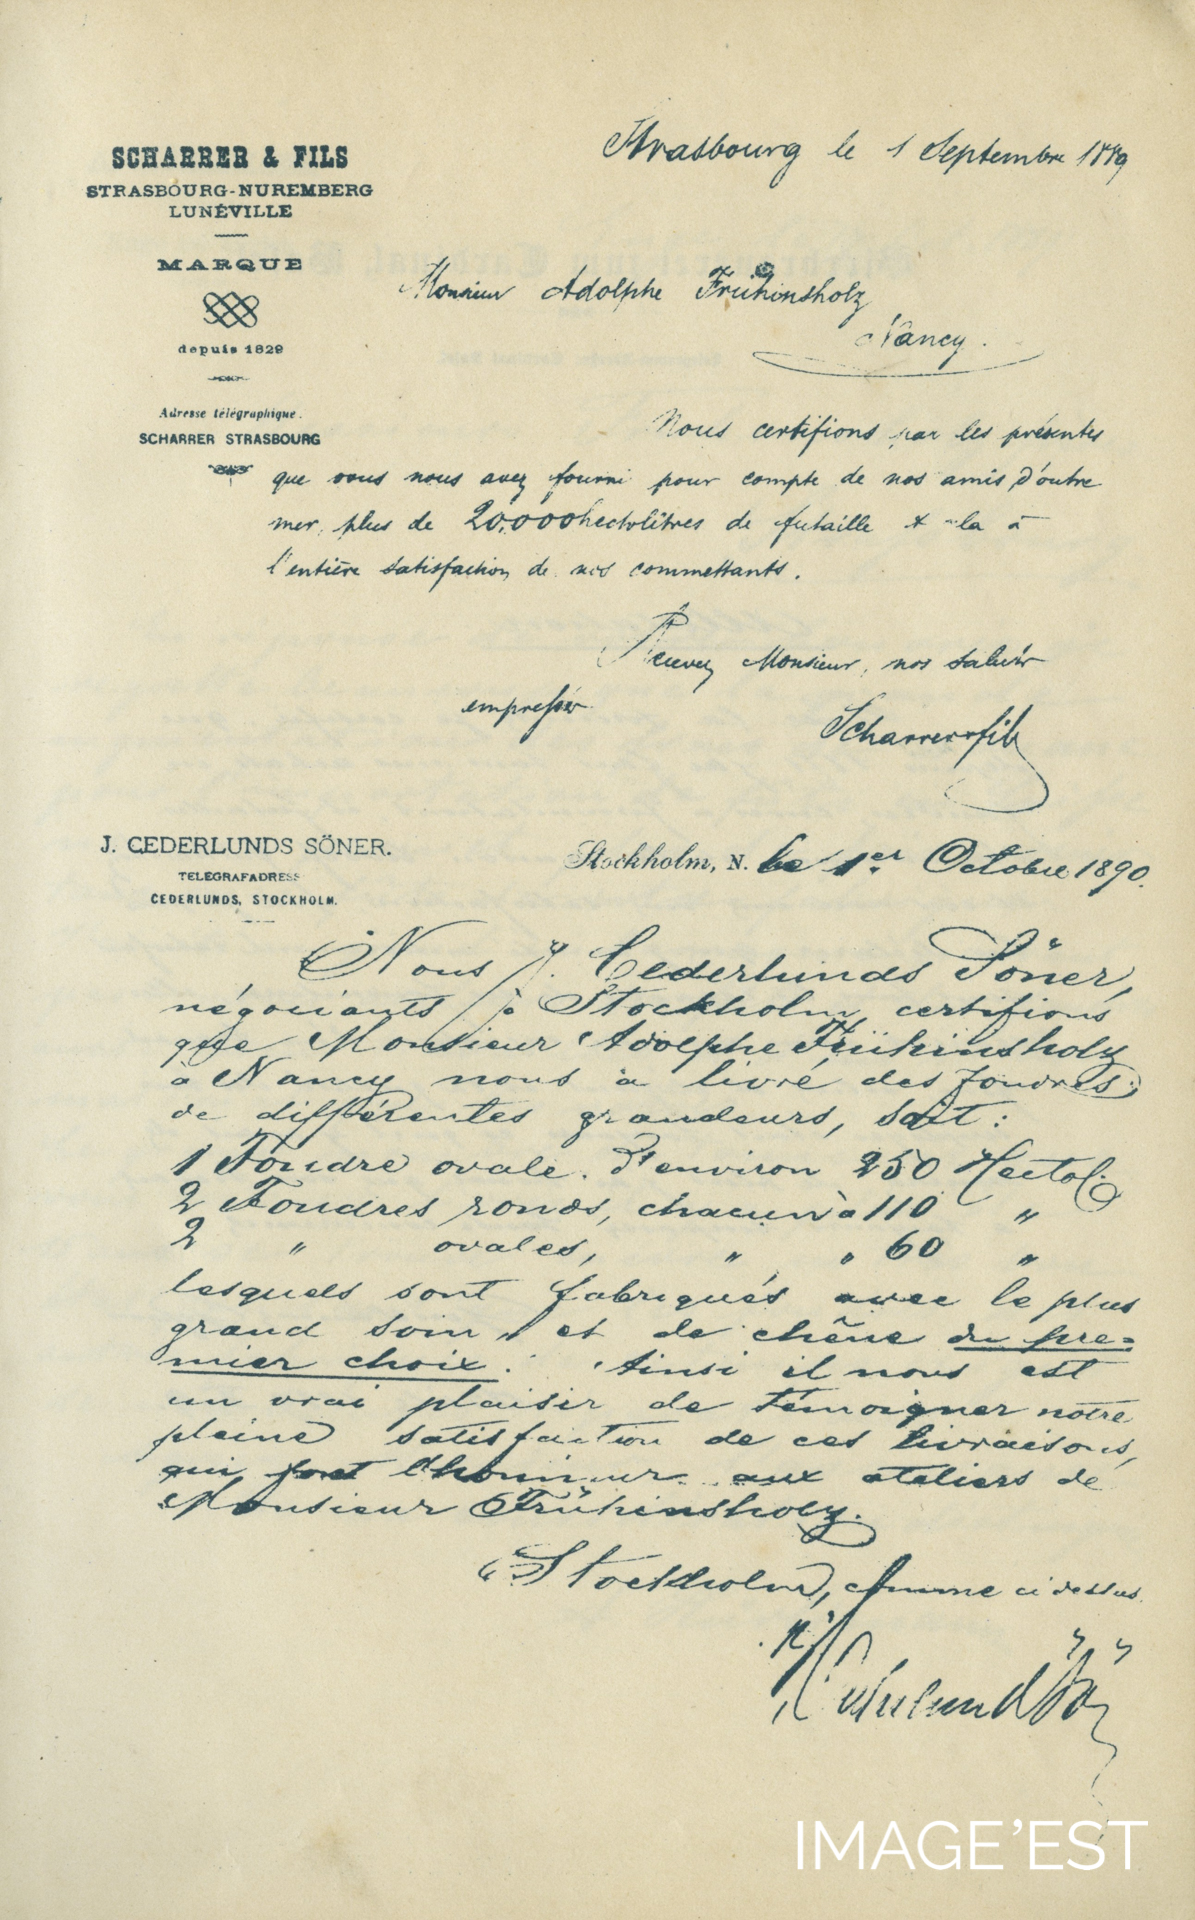 SCHARRER & FILS
STRASBOURG-NUREMBERG
LUNÉVILLE
MARQUE
depuis 1829
Adresse télégraphique.
SCHARRER STRASBOURG
Strasbourg le 1 Septembre 1889
Monsieur Adolphe Frühinsholz
Nancy.
Nous certifions par les présentes
que vous nous avez fourni pour compte de nos amis d'outre
mer, plus de 20,000 hectolitres de futaille & la à
l'entière satisfaction de nos commettants.
Recevez Monsieur, nos saluts
empressés
Scharrer & fils
J. CEDERLUNDS SÖNER.
TELEGRAFADRESS
CEDERLUNDS, STOCKHOLM.
Stockholm, N. le 1er Octobre 1890.
Nous J. Cederlunds Söner,
négociants à Stockholm, certifions
que Monsieur Adolphe Frühinsholz
à Nancy nous a livré des foudres
de différentes grandeurs, soit:
1 Foudre ovale. d'environ 250 Hectol.
2 Foudres ronds, chacun à 110 "
2 " ovales, " " 60 "
lesquels sont fabriqués avec le plus
grand soin et de chêne du pre=
mier choix. Ainsi il nous est
un vrai plaisir de témoigner notre
pleine satisfaction de ces livraisons,
qui font l'honneur aux ateliers de
Monsieur Frühinsholz.
Stockholm, comme ci dessus.
J. Cederlunds Söner
IMAGE'EST